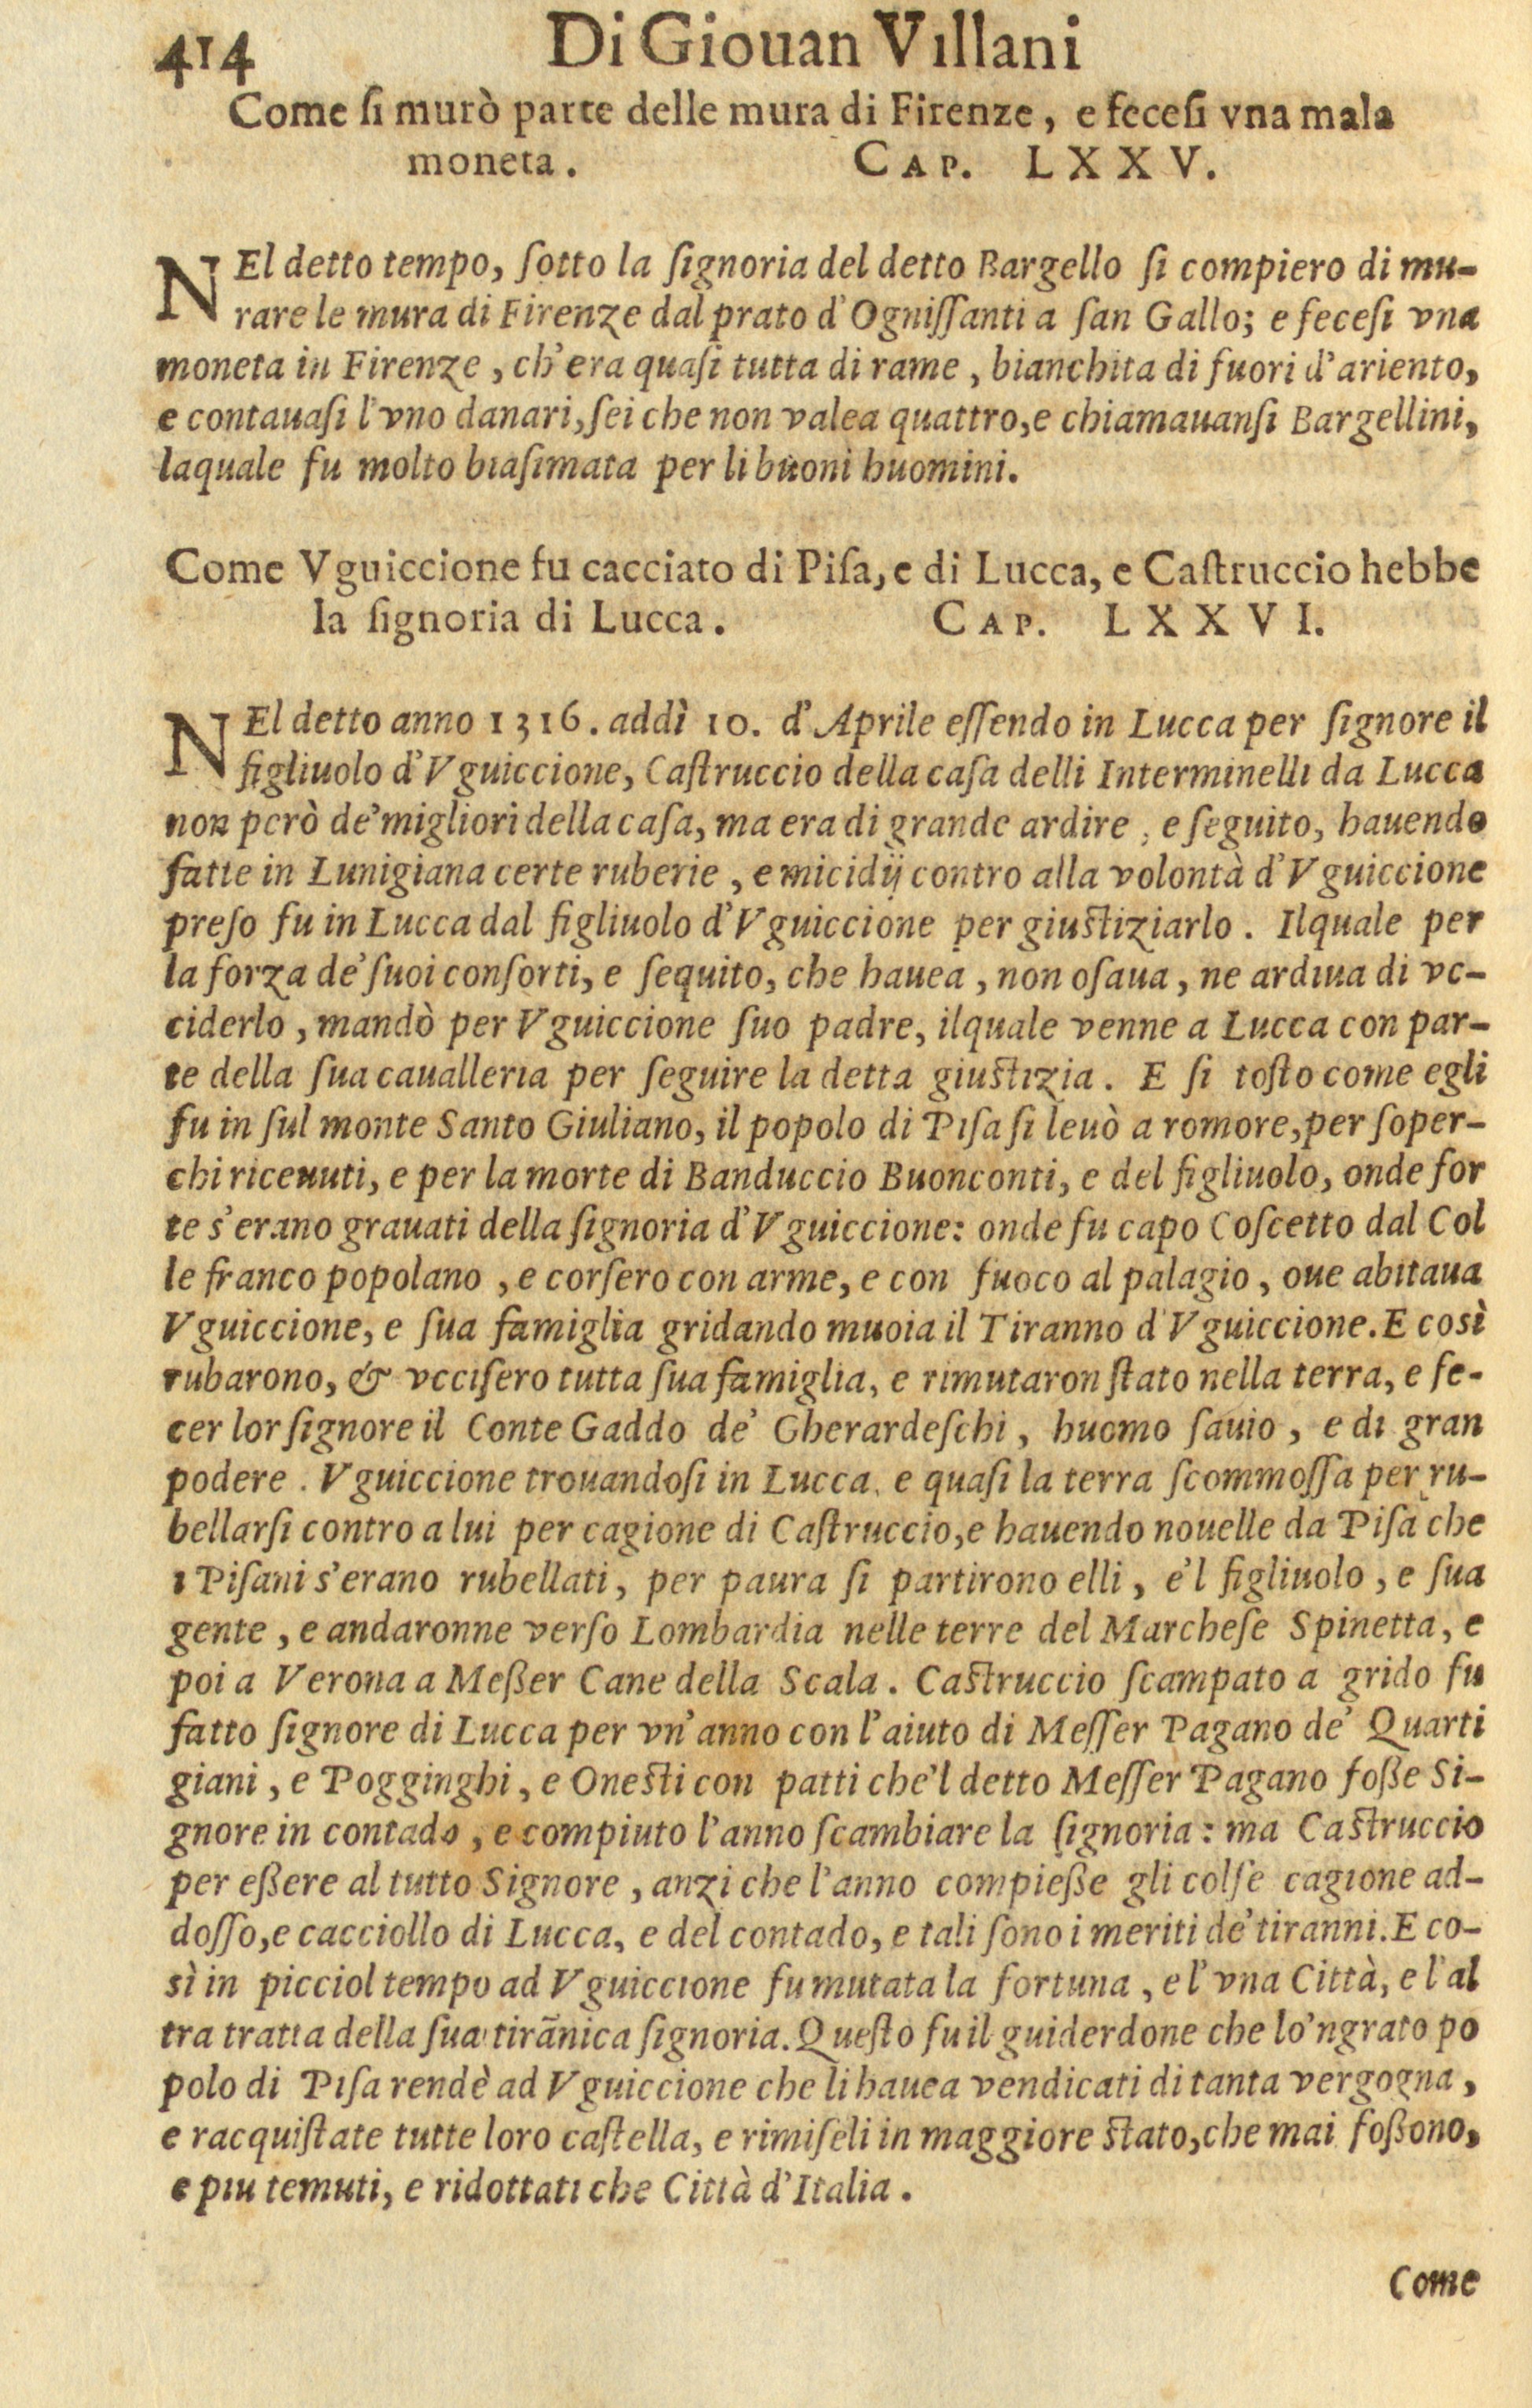 414 Di Giouan Villani
Come ſi murò parte delle mura di Firenze, e feceſi vna mala
moneta. CAP. LXXV.
NEl detto tempo, ſotto la ſignoria del detto Bargello ſi compiero di mu-
rare le mura di Firenze dal prato d'Ogniſſanti a ſan Gallo; e feceſi vna
moneta in Firenze, ch'era quaſi tutta di rame, bianchita di fuori d'ariento,
e contauaſi l'vno danari, ſei che non valea quattro, e chiamauanſi Bargellini,
laquale fu molto biaſimata per li buoni huomini.
Come Vguiccione fu cacciato di Piſa, e di Lucca, e Caſtruccio hebbe
la ſignoria di Lucca. CAP. LXXVI.
NEl detto anno 1316. addì 10. d'Aprile eſſendo in Lucca per ſignore il
figliuolo d'Vguiccione, Caſtruccio della caſa delli Interminelli da Lucca
non però de'migliori della caſa, ma era di grande ardire, e ſeguito, hauendo
fatte in Lunigiana certe ruberie, e micidij contro alla volontà d'Vguiccione
preſo fu in Lucca dal figliuolo d'Vguiccione per giuſtiziarlo. Ilquale per
la forza de'ſuoi conſorti, e ſequito, che hauea, non oſaua, ne ardiua di vc-
ciderlo, mandò per Vguiccione ſuo padre, ilquale venne a Lucca con par-
te della ſua caualleria per ſeguire la detta giuſtizia. E ſi toſto come egli
fu in ſul monte Santo Giuliano, il popolo di Piſa ſi leuò a romore, per ſoper-
chi riceuuti, e per la morte di Banduccio Buonconti, e del figliuolo, onde for
te s'erano grauati della ſignoria d'Vguiccione: onde fu capo Coſcetto dal Col
le franco popolano, e corſero con arme, e con fuoco al palagio, oue abitaua
Vguiccione, e ſua famiglia gridando muoia il Tiranno d'Vguiccione. E così
rubarono, & vcciſero tutta ſua famiglia, e rimutaron ſtato nella terra, e fe-
cer lor ſignore il Conte Gaddo de' Gherardeſchi, huomo ſauio, e di gran
podere. Vguiccione trouandoſi in Lucca, e quaſi la terra ſcommoſſa per ru-
bellarſi contro a lui per cagione di Caſtruccio, e hauendo nouelle da Piſa che
i Piſani s'erano rubellati, per paura ſi partirono elli, e'l figliuolo, e ſua
gente, e andaronne verſo Lombardia nelle terre del Marcheſe Spinetta, e
poi a Verona a Meßer Cane della Scala. Caſtruccio ſcampato a grido fu
fatto ſignore di Lucca per vn'anno con l'aiuto di Meſſer Pagano de' Quarti
giani, e Pogginghi, e Oneſti con patti che'l detto Meſſer Pagano foße Si-
gnore in contado, e compiuto l'anno ſcambiare la ſignoria: ma Caſtruccio
per eßere al tutto Signore, anzi che l'anno compieße gli colſe cagione ad-
doſſo, e cacciollo di Lucca, e del contado, e tali ſono i meriti de'tiranni. E co-
sì in picciol tempo ad Vguiccione fu mutata la fortuna, e l'vna Città, e l'al
tra tratta della ſua tirãnica ſignoria. Queſto fu il guiderdone che lo'ngrato po
polo di Piſa rendè ad Vguiccione che li hauea vendicati di tanta vergogna,
e racquiſtate tutte loro caſtella, e rimiſeli in maggiore ſtato, che mai foßono,
e piu temuti, e ridottati che Città d'Italia.
Come